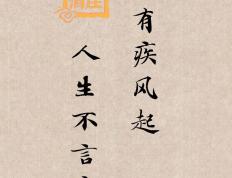 有疾风起
人生不言